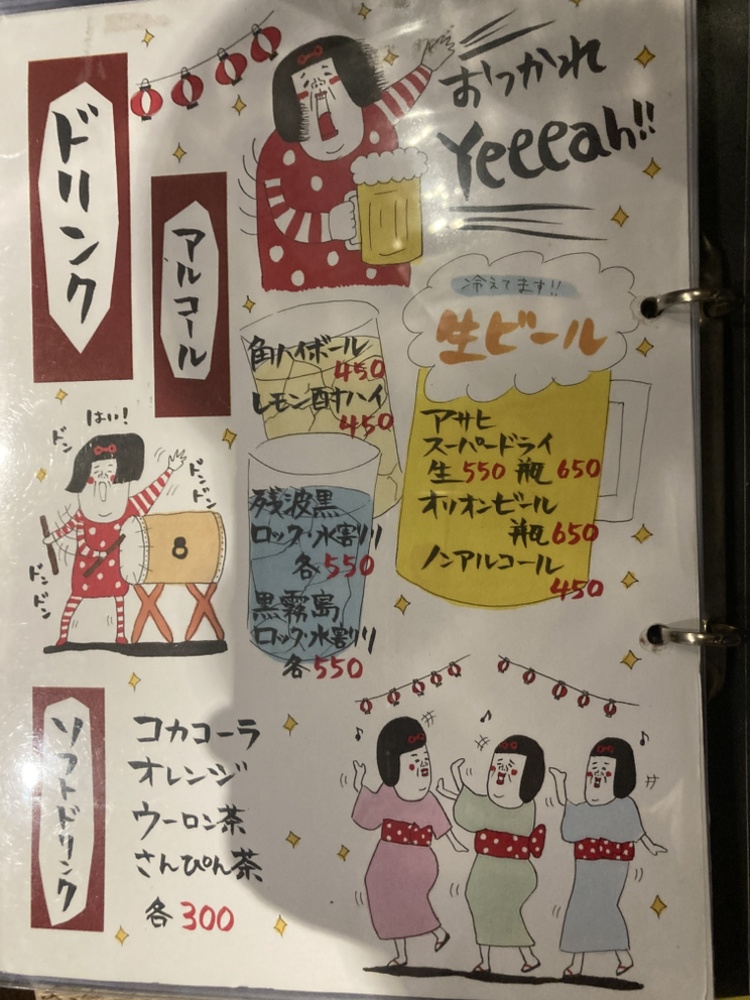 ドリンク
おつかれ
Yeeeah!!
アルコール
角ハイボール
450
レモン酎ハイ
450
冷えてます!!
生ビール
アサヒ
スーパードライ
生550 瓶650
オリオンビール
瓶650
ノンアルコール
450
残波黒
ロック・水割り
各550
黒霧島
ロック・水割り
各550
はい!
ドン
ドン
ドン
ドン
ドン
8
ソフトドリンク
コカコーラ
オレンジ
ウーロン茶
さんぴん茶
各300